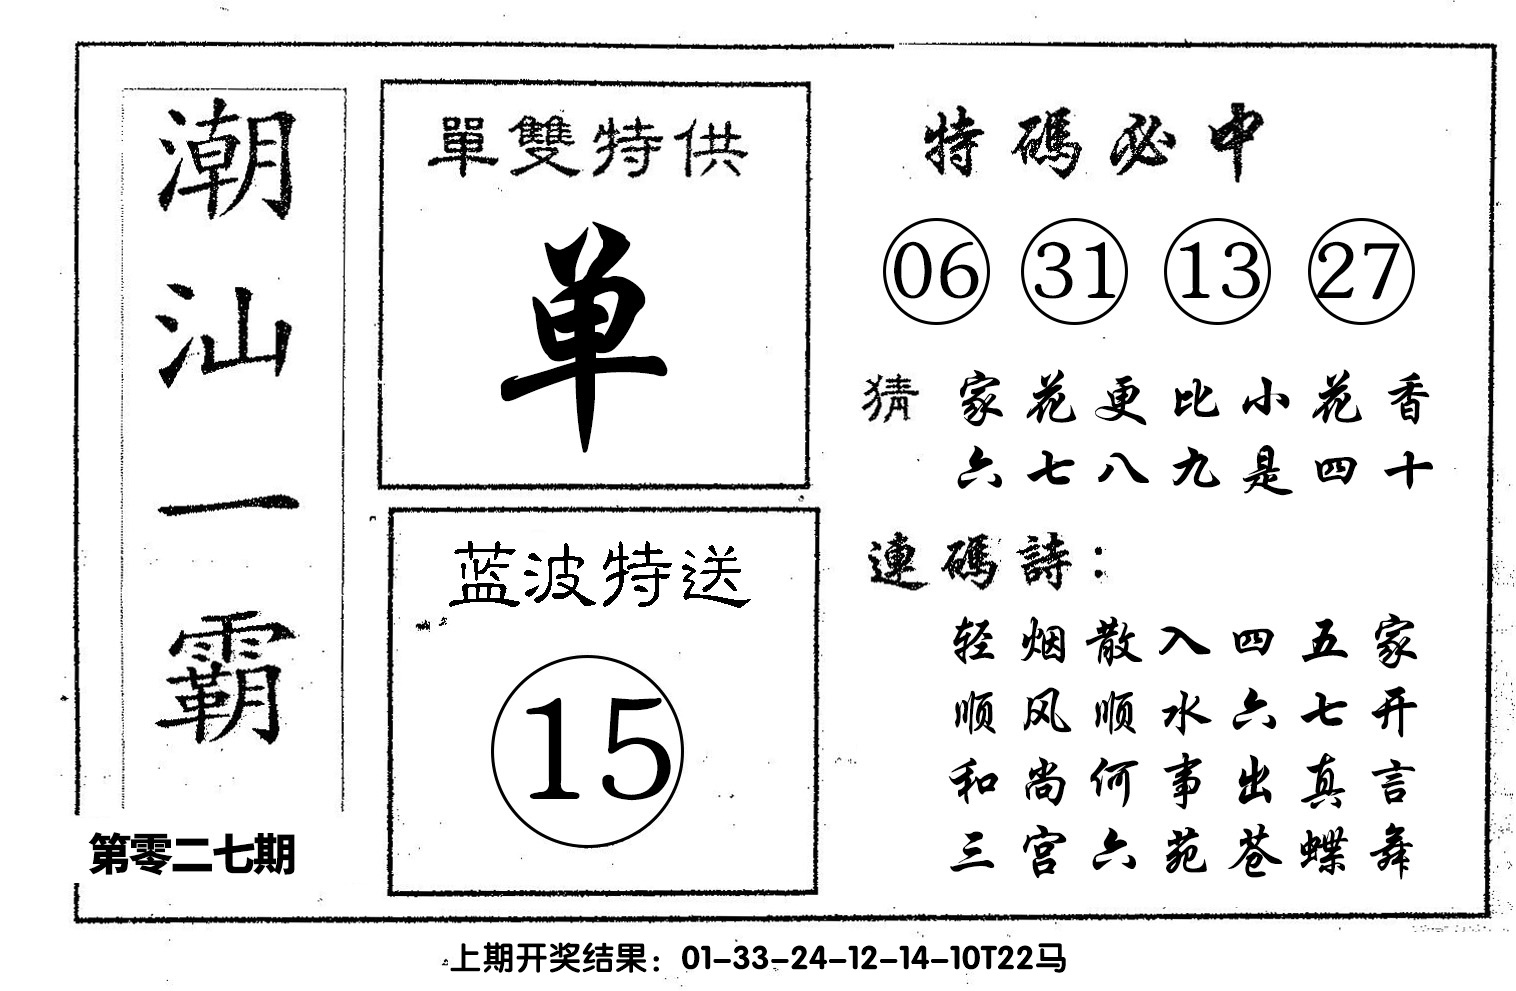 潮汕一霸
第零二七期
單雙特供
单
蓝波特送
15
特碼必中
06 31 13 27
猜 家花更比小花香
六七八九是四十
連碼詩：
轻烟散入四五家
顺风顺水六七开
和尚何事出真言
三宫六苑苍蝶舞
上期开奖结果：01-33-24-12-14-10T22马